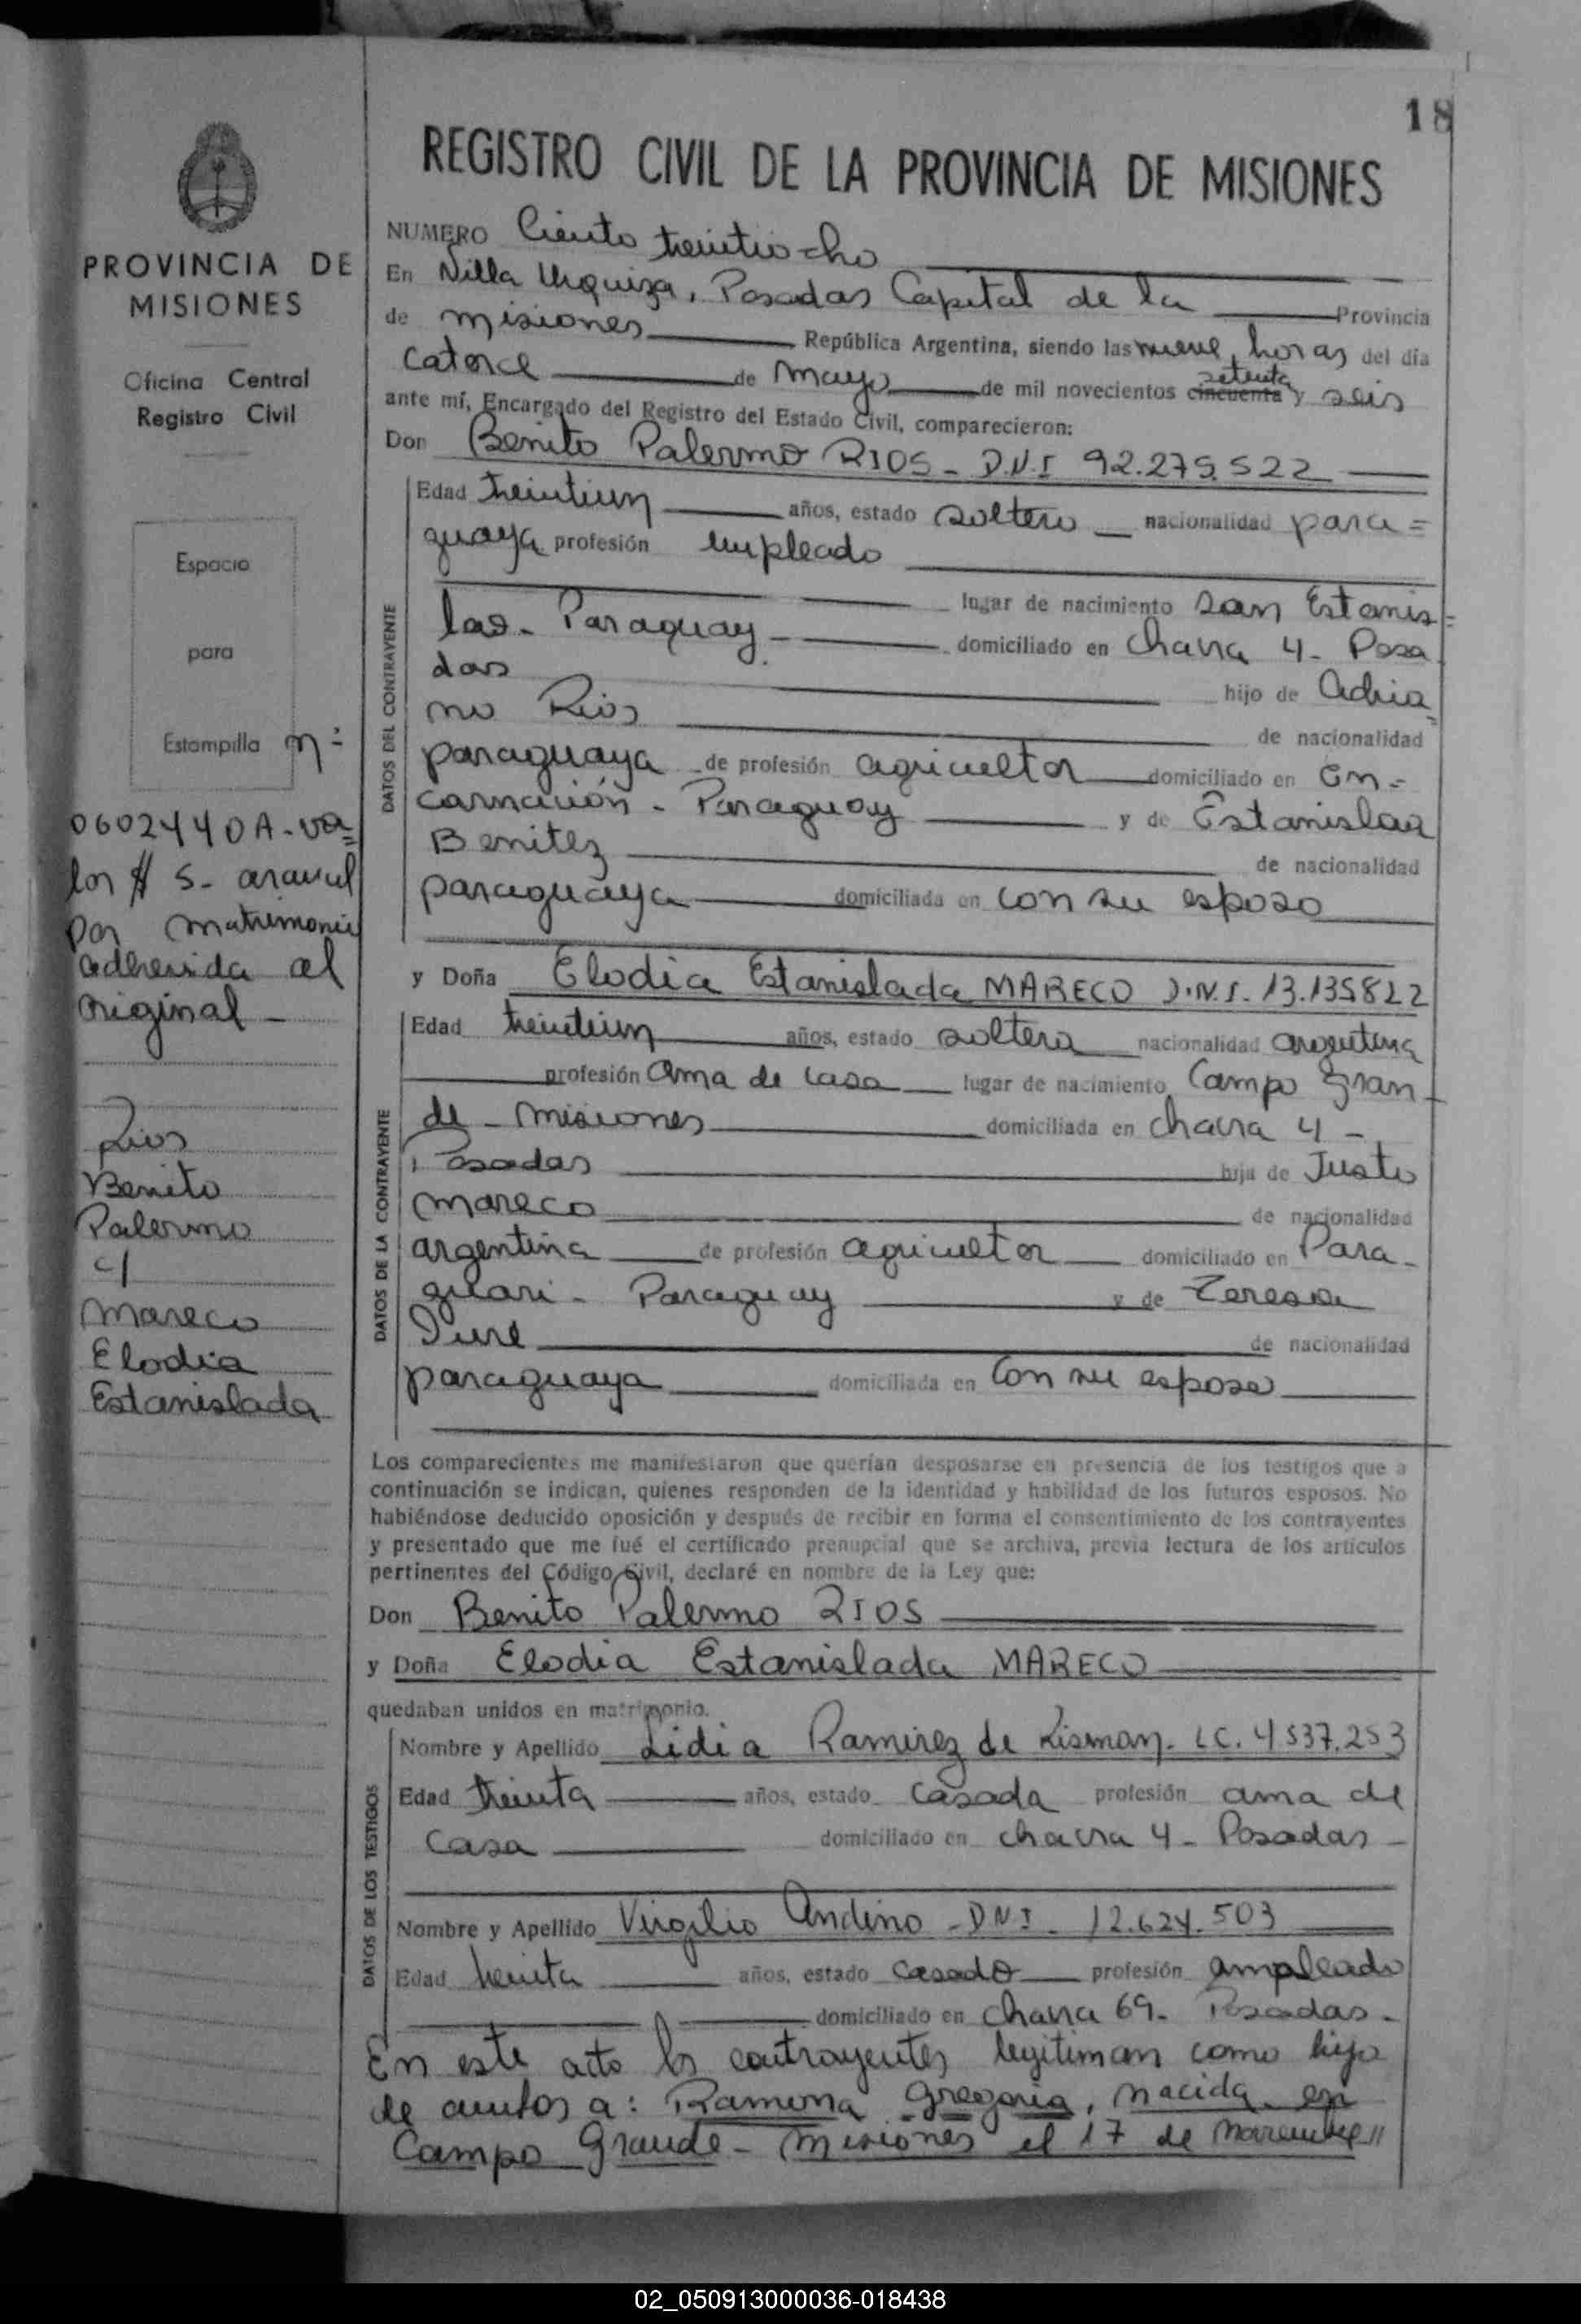 18
REGISTRO CIVIL DE LA PROVINCIA DE MISIONES
PROVINCIA DE
MISIONES
Oficina Central
Registro Civil
Espacio
para
Estampilla n=
0602440A-va=
lor $ 5- arancel
por matrimonio
adherida al
original-
Rios
Benito
Palermo
c/
Mareco
Elodia
Estanislada
NUMERO Ciento treintiocho
En Villa Urquiza, Posadas Capital de la Provincia
de misiones República Argentina, siendo las nueve horas del día
catorce de mayo de mil novecientos cincuenta setenta y seis
ante mí, Encargado del Registro del Estado Civil, comparecieron:
Don Benito Palermo RIOS - D.N.I 92.275.522
DATOS DEL CONTRAYENTE
Edad treintiun años, estado soltero nacionalidad para=
guaya profesión empleado
lugar de nacimiento San Estanis=
lao- Paraguay- domiciliado en Chacra 4- Posa
das hijo de Adria=
no Rios de nacionalidad
paraguaya de profesión agricultor domiciliado en En=
carnación - Paraguay y de Estanislaa
Benitez de nacionalidad
paraguaya domiciliada en con su esposo
y Doña Elodia Estanislada MARECO D.N.I. 13.135822
DATOS DE LA CONTRAYENTE
Edad treintiun años, estado soltera nacionalidad argentina
profesión ama de casa lugar de nacimiento Campo Gran
de - misiones domiciliada en chacra 4 -
Posadas hija de Justo
Mareco de nacionalidad
argentina de profesión agricultor domiciliado en Para-
guari - Paraguay y de Teresa
de nacionalidad
paraguaya domiciliada en con su esposo
Los comparecientes me manifestaron que querían desposarse en presencia de los testigos que a
continuación se indican, quienes responden de la identidad y habilidad de los futuros esposos. No
habiéndose deducido oposición y después de recibir en forma el consentimiento de los contrayentes
y presentado que me fué el certificado prenupcial que se archiva, previa lectura de los artículos
pertinentes del Código Civil, declaré en nombre de la Ley que:
Don Benito Palermo RIOS
y Doña Elodia Estanislada MARECO
quedaban unidos en matrimonio.
DATOS DE LOS TESTIGOS
Nombre y Apellido Lidia Ramirez de Lisman- LC. 4537.253
Edad treinta años, estado casada profesión ama de
casa domiciliado en chacra 4- Posadas-
Nombre y Apellido Virgilio Andino - DNI - 12.624.503
Edad treinta años, estado casado profesión empleado
domiciliado en chacra 69- Posadas-
En este acto los contrayentes legitiman como hija
de ambos a: Ramona Gregoria, nacida en
Campo Grande - Misiones el 17 de noviembre//
02_050913000036-018438